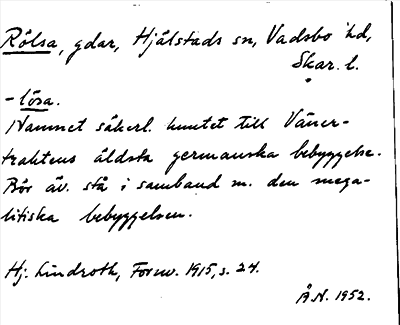 Rölsa, gdar, Hjälstads sn, Vadsbo hd,
Skar. l.
- lösa.
Namnet säkerl. knutet till Väner-
traktens äldsta germanska bebyggelse.
Bör äv. stå i samband m. den mega-
litiska bebyggelsen.
Hj. Lindroth, Fornv. 1915, s. 24.
Å.N. 1952.